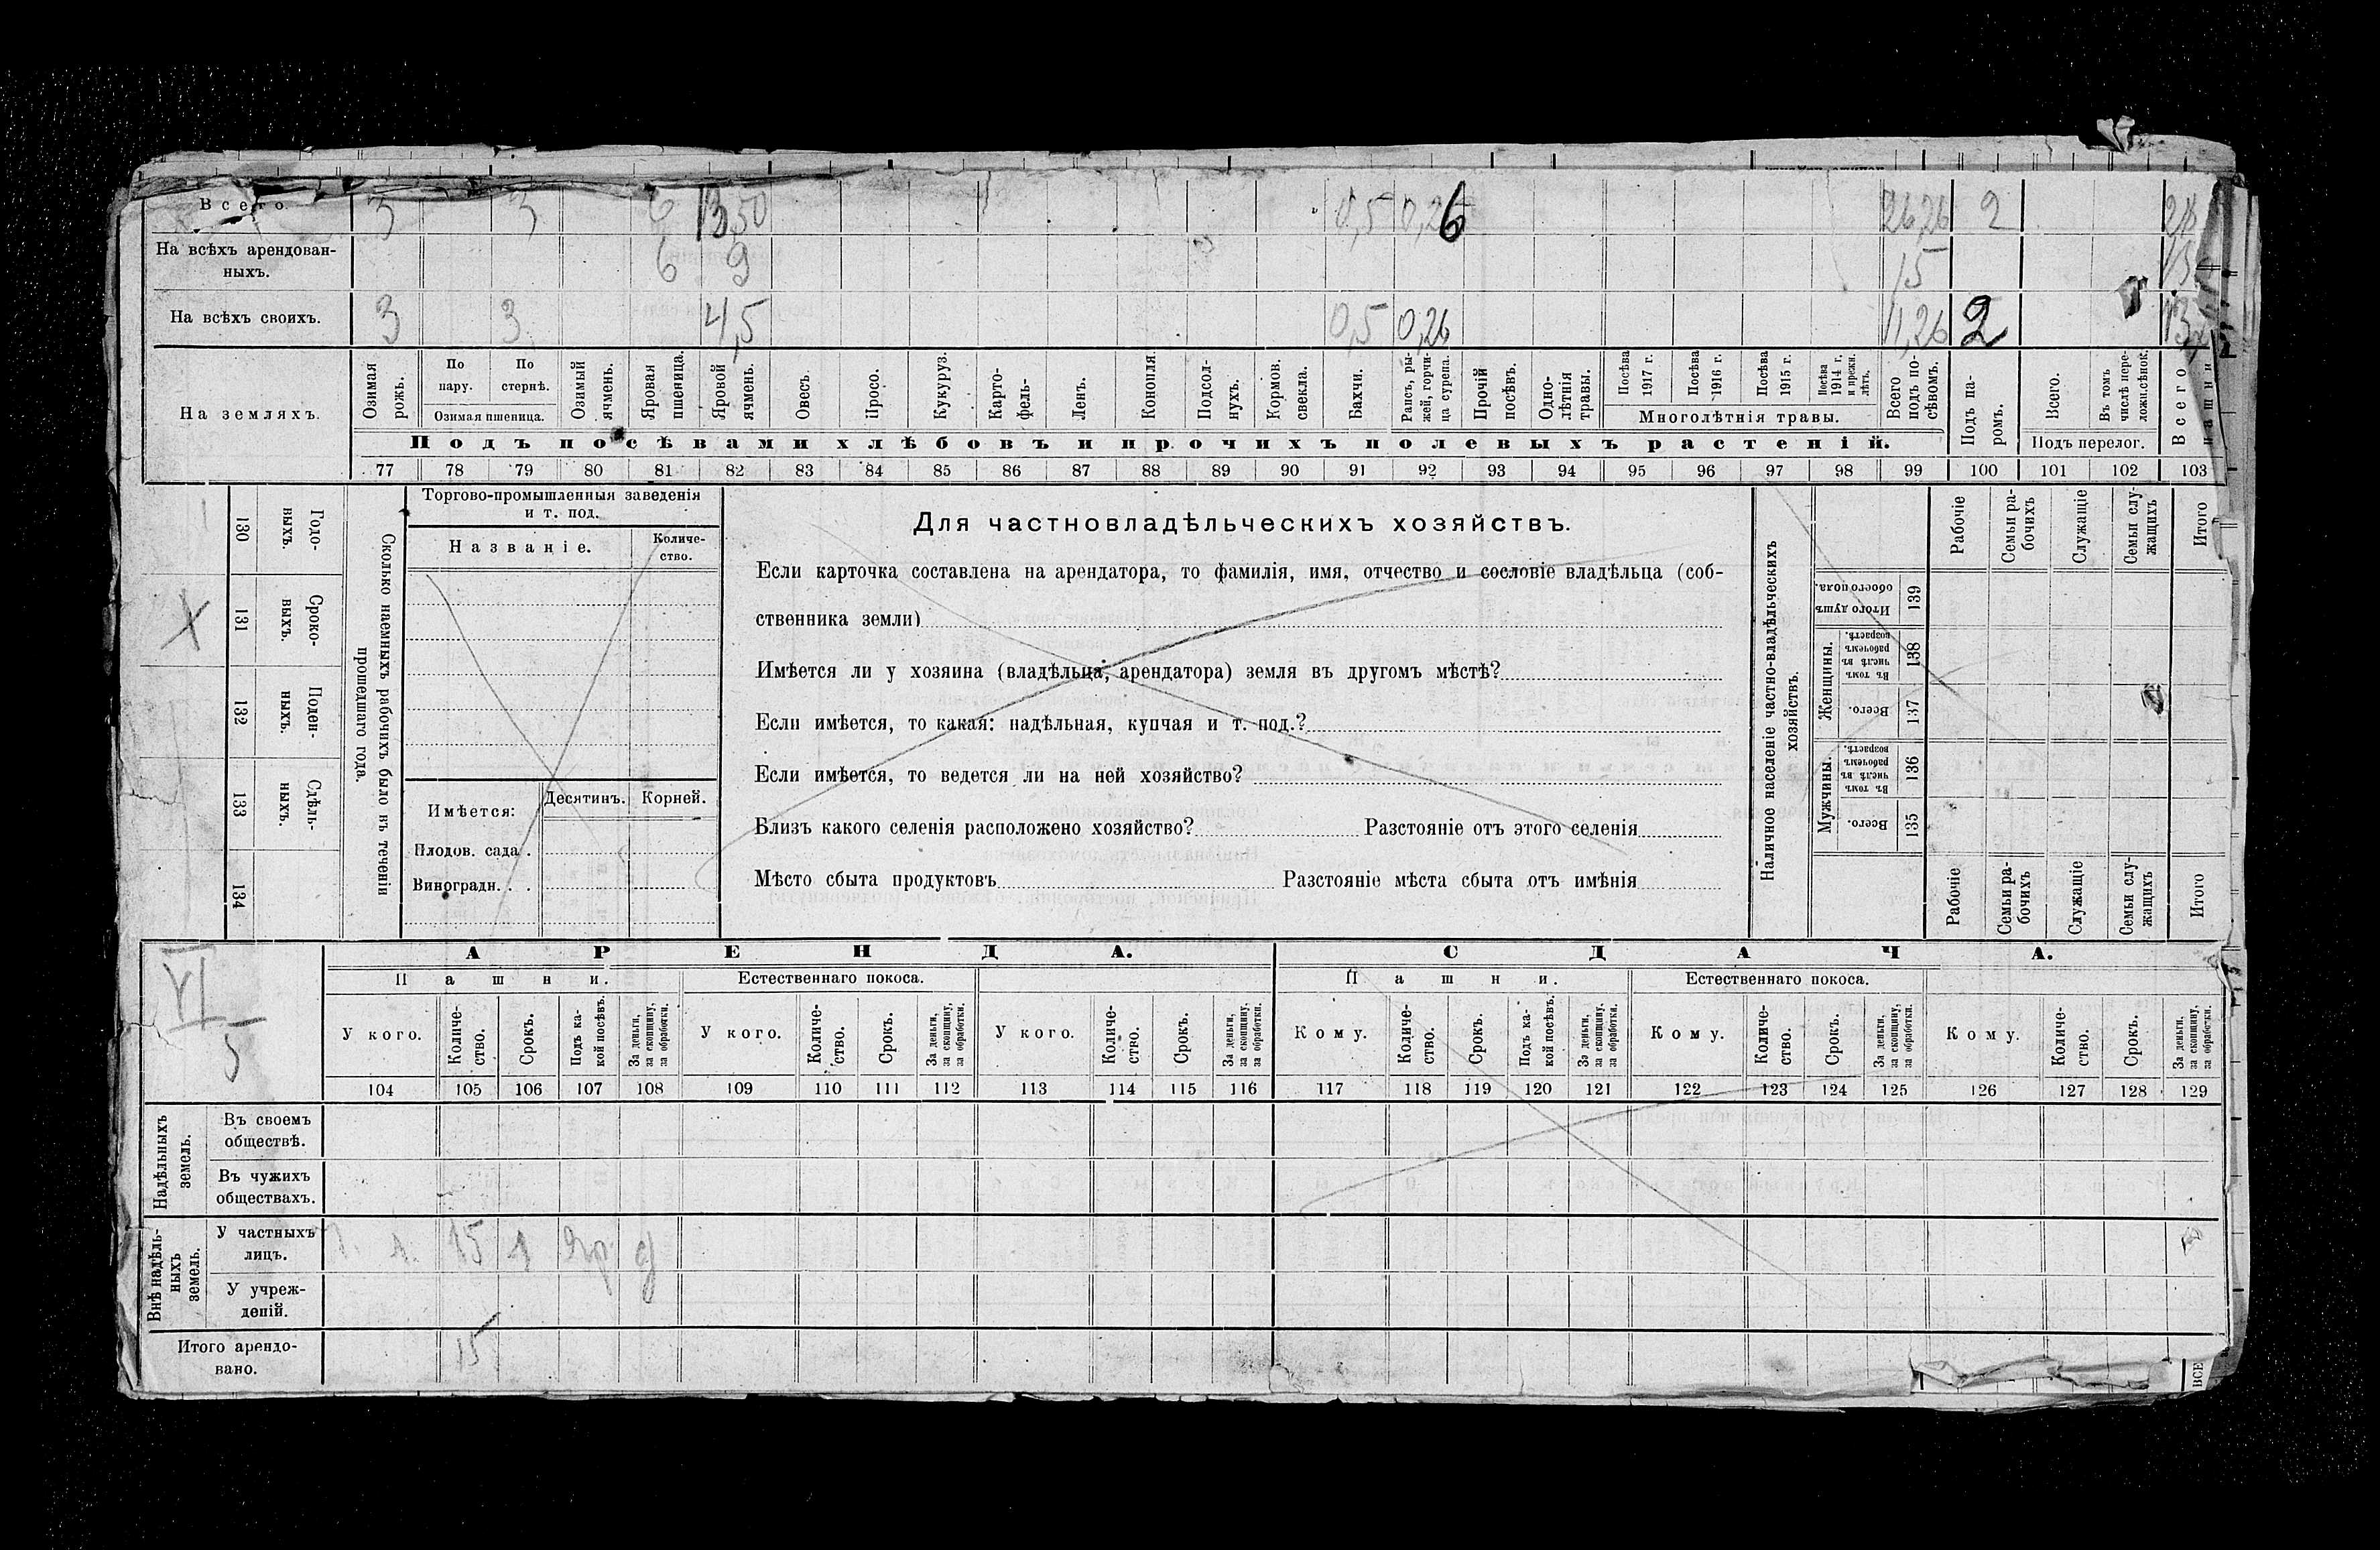 Всего 3 3 6 13,50 0,5 0,26 26,26 2
На всѣхъ арендован-
ныхъ. 6 9 15
На всѣхъ своихъ. 3 3 4,5 0,5 0,26 11,26 2
На земляхъ.
Озимая рожь.
По пару.
По стернѣ.
Озимая пшеница.
Озимый ячмень.
Яровая пшеница.
Яровой ячмень.
Овесъ.
Просо.
Кукуруз.
Карто-
фель-
Ленъ.
Конопля
Подсол-
нухъ.
Кормов.
свекла.
Бахчи.
Рапсъ, ры-
жей, горчи-
ца сурепа.
Прочій
посѣвъ.
Одно-
лѣтнія
травы.
Посѣва
1917 г.
Посѣва
1916 г.
Посѣва
1915 г.
Посѣва
1914 г.
и прежн.
лѣтъ.
Многолѣтнія травы.
Всего
подъ по-
сѣвомъ.
Подъ па-
ромъ.
Всего.
Въ томъ
числѣ пере-
ложн.сѣнок.
Подъ перелог.
Всего
пашни
Подъ посѣвами хлѣбовъ и прочихъ полевыхъ растеній.
77 78 79 80 81 82 83 84 85 86 87 88 89 90 91 92 93 94 95 96 97 98 99 100 101 102 103
Годо-
выхъ.
130
Сроко-
выхъ.
131
Поден-
ныхъ.
132
Сдѣль-
ныхъ.
133
134
Сколько наемныхъ рабочихъ было въ теченіи
прошедшаго года.
Торгово-промышленныя заведенія
и т. под.
Названіе.
Количе-
ство.
Имѣется:
Десятинъ. Корней.
Плодов. сада .
Виноградн. . .
Для частновладѣльческихъ хозяйствъ.
Если карточка составлена на арендатора, то фамилія, имя, отчество и сословіе владѣльца (соб-
ственника земли)
Имѣется ли у хозяина (владѣльца, арендатора) земля въ другомъ мѣстѣ?
Если имѣется, то какая: надѣльная, купчая и т. под.?
Если имѣется, то ведется ли на ней хозяйство?
Близъ какого селенія расположено хозяйство? Разстояніе отъ этого селенія
Мѣсто сбыта продуктовъ Разстояніе мѣста сбыта отъ имѣнія
Наличное населеніе частно-владѣльческихъ
хозяйствъ.
Рабочіе
Семьи ра-
бочихъ
Служащіе
Семьи слу-
жащихъ
Итого
Итого душъ
обоего пола.
139
Женщины.
Въ томъ
числѣ въ
рабочемъ
возрастѣ.
138
Всего.
137
Мужчины.
Въ томъ
числѣ въ
рабочемъ
возрастѣ.
136
Всего.
135
Рабочіе
Семьи ра-
бочихъ
Служащіе
Семьи слу-
жащихъ
Итого
VI
5
АРЕНДА. СДАЧА.
Пашни. Естественнаго покоса. Пашни. Естественнаго покоса.
У кого.
Количе-
ство.
Срокъ.
Подъ ка-
кой посѣвъ.
За деньги,
за скопщину,
за обработки.
У кого.
Количе-
ство.
Срокъ.
За деньги,
за скопщину,
за обработки.
У кого.
Количе-
ство.
Срокъ.
За деньги,
за скопщину,
за обработки.
Кому.
Количе-
ство.
Срокъ.
Подъ ка-
кой посѣвъ.
За деньги,
за скопщину,
за обработки.
Кому.
Количе-
ство.
Срокъ.
За деньги,
за скопщину,
за обработки.
Кому.
Количе-
ство.
Срокъ.
За деньги,
за скопщину,
за обработки.
104 105 106 107 108 109 110 111 112 113 114 115 116 117 118 119 120 121 122 123 124 125 126 127 128 129
Надѣльныхъ
земель.
Въ своемъ
обществѣ.
Въ чужихъ
обществахъ.
Внѣ надѣль-
ныхъ
земель.
У частныхъ
лицъ. 15 1 яр. д
У учреж-
деній.
Итого арендо-
вано. 15
ВСЕ